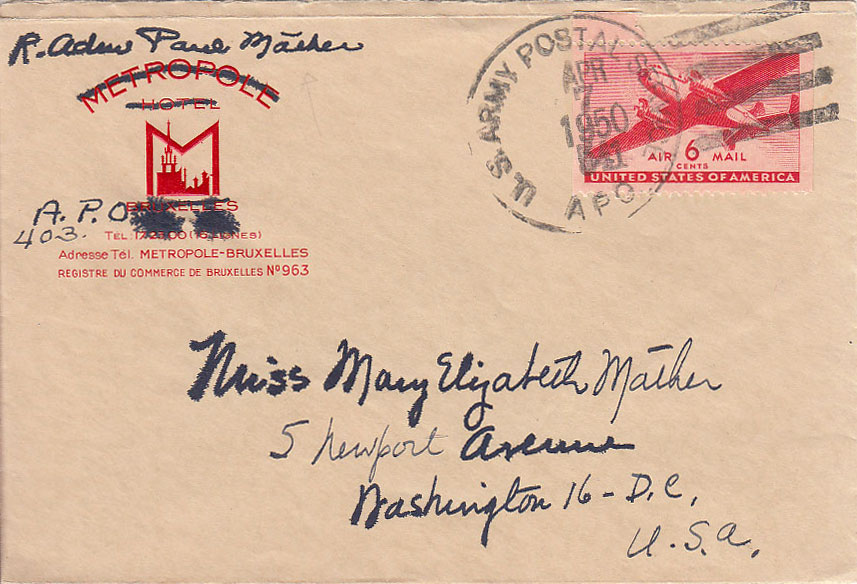 R. Adm Paul Mather
METROPOLE
HOTEL
M
BRUXELLES
A. P. O.
403.
Adresse Tél. METROPOLE-BRUXELLES
REGISTRE DU COMMERCE DE BRUXELLES Nº 963
U.S. ARMY POSTAL
APR
1950
APO
AIR 6 MAIL
CENTS
UNITED STATES OF AMERICA
Miss Mary Elizabeth Māther
5 Newport Avenue
Washington 16 - D.C,
U.S.A.